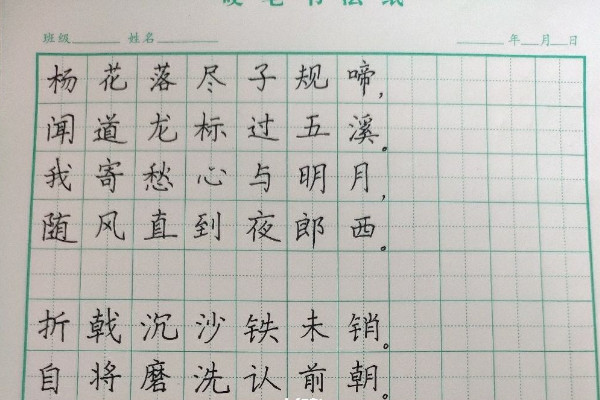 硬笔书法纸
班级 姓名 年 月 日
杨花落尽子规啼,
闻道龙标过五溪。
我寄愁心与明月,
随风直到夜郎西。
折戟沉沙铁未销。
自将磨洗认前朝。